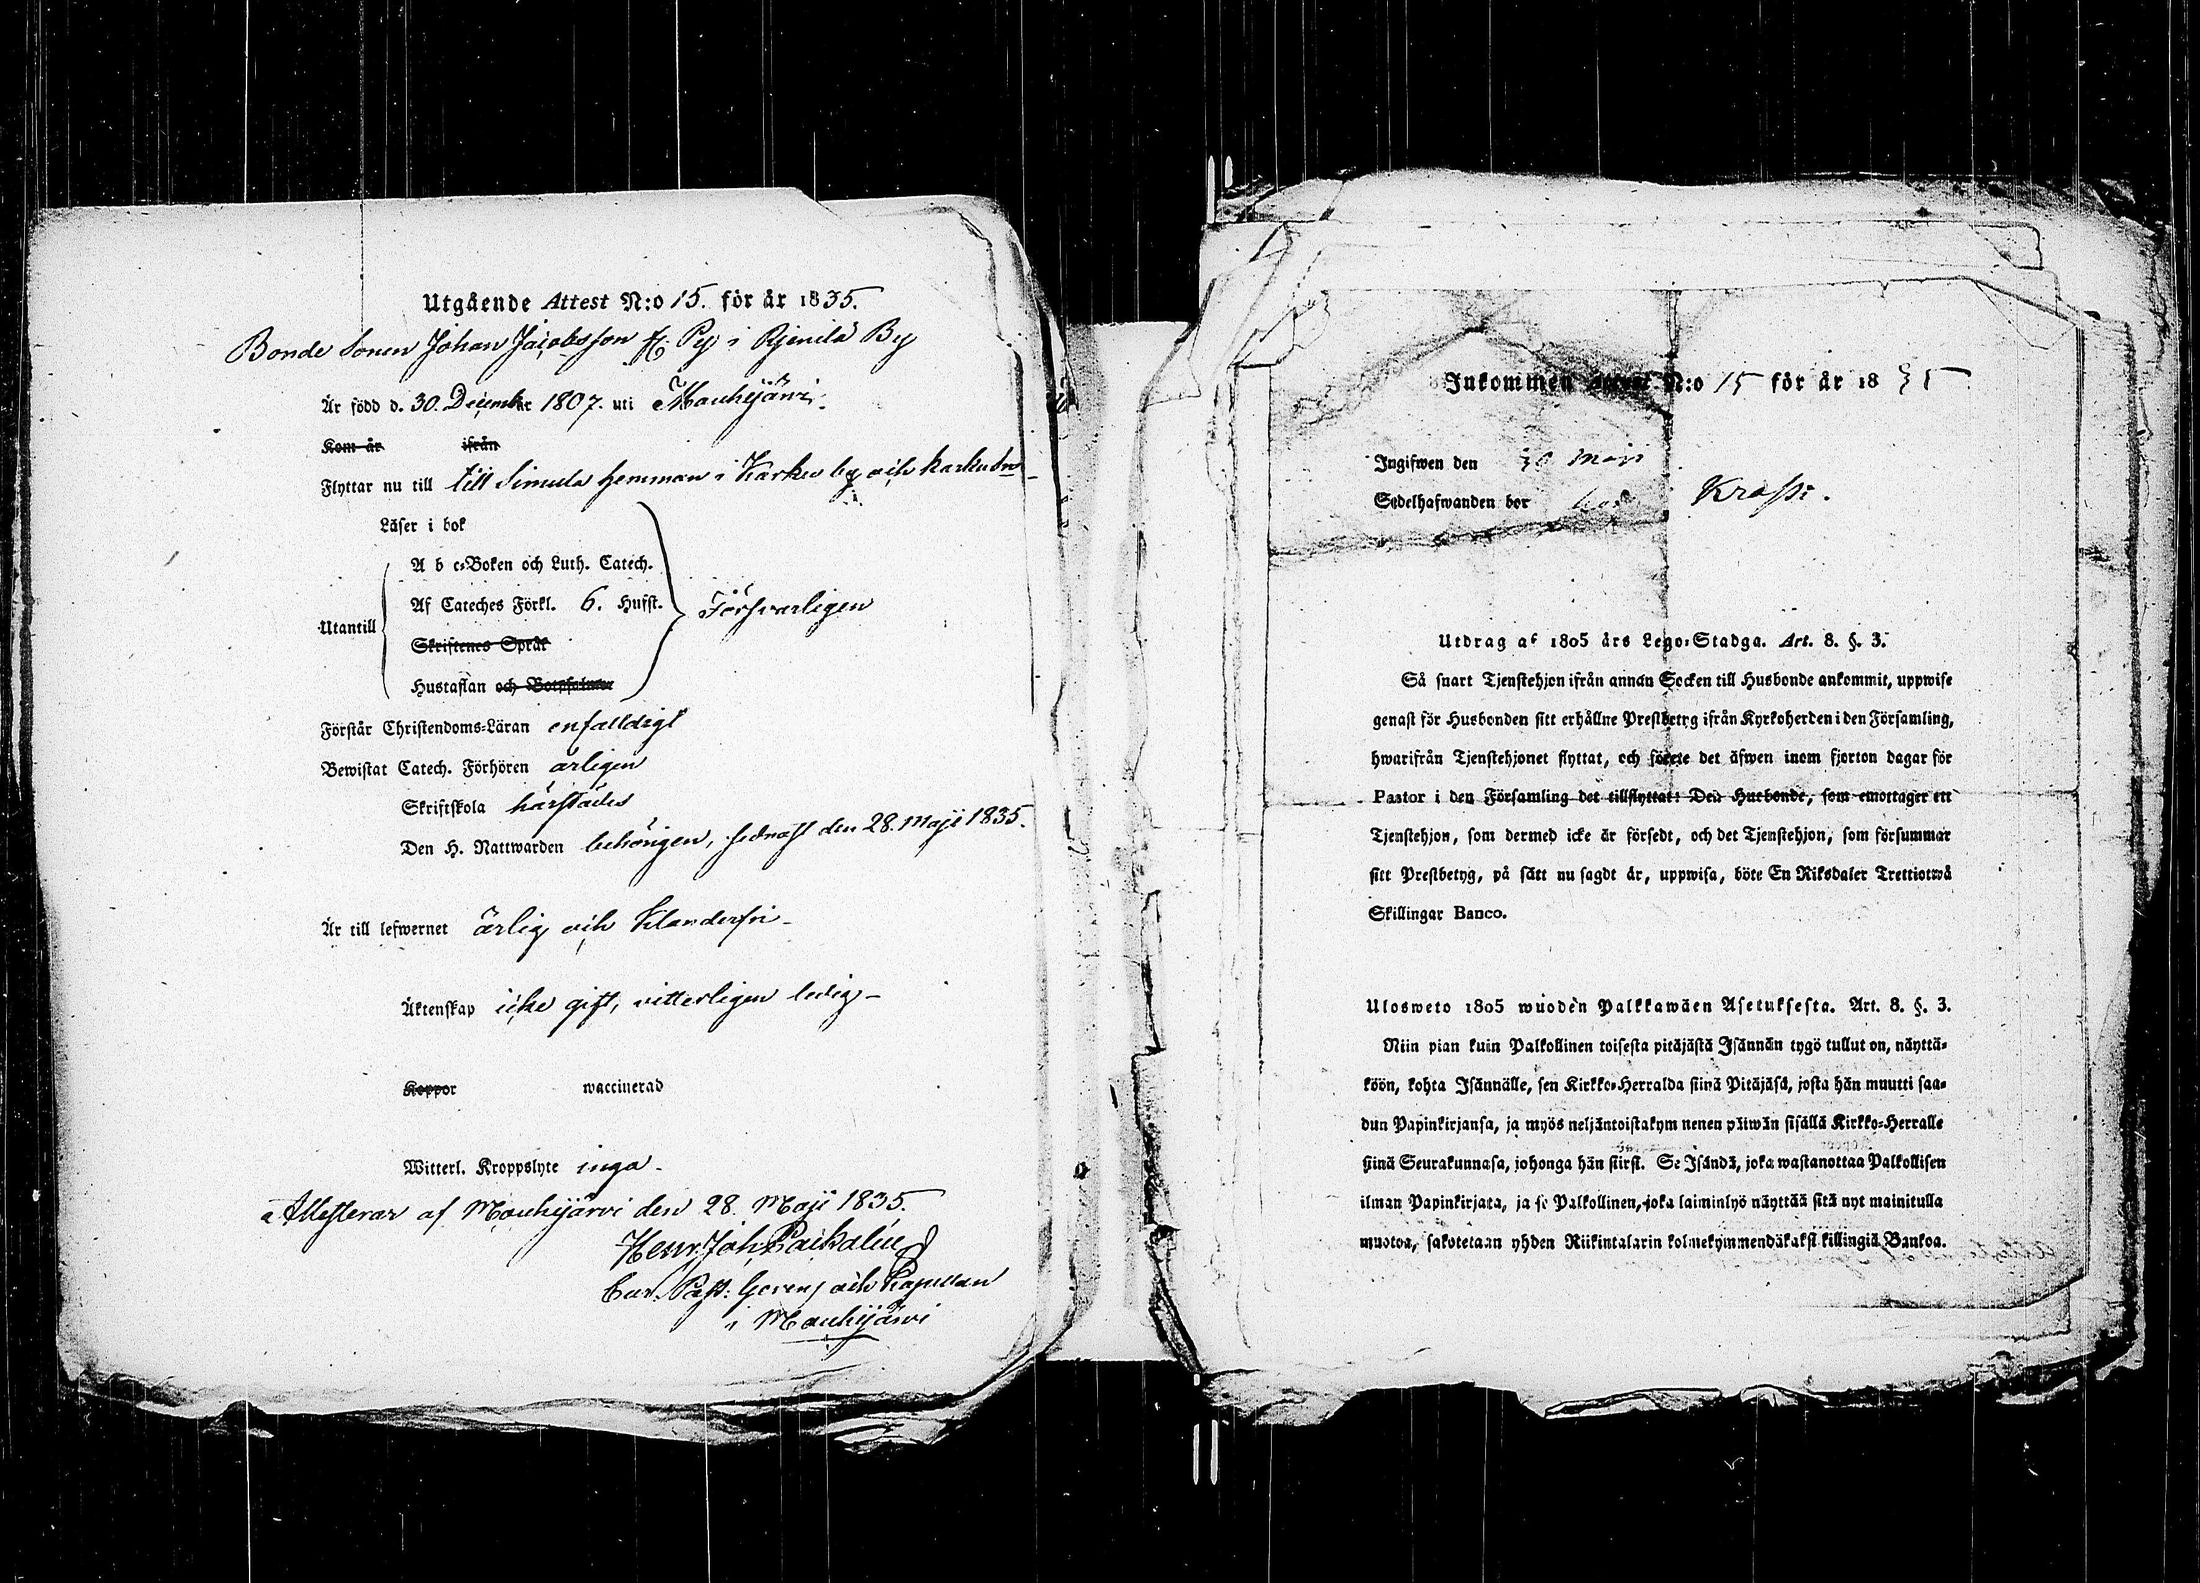 Utgående Attest N:o 15. för år 1835.
Bonde Sonen Johan Jacobsson Py i By
Är född d. 30. December 1807. uti Mouhijärvi.
Kom år ifrån
Flyttar nu till till Simula hemman i Karku by och Karku Sn
Läser i bok
A b c-Boken och Luth. Catech.
Af Cateches Förkl. 6. Hufst. Försvarligen
Utantill
Skriftenes Språk
Hustaflan och Botpsalmer
Förstår Christendoms-Läran enfalldigt
Bewistat Catech. Förhören årligen
Skriftskola härstädes
Den H. Nattwarden behörigen, sednast den 28. Maji 1835.
Är till lefwernet ärlig och Klanderfri
Äktenskap icke gift, vitterligen ledig
Koppor waccinerad
Witterl. Kroppslyte inga
Attesterar af Mouhijärvi den 28. Maji 1835.
Henr. Joh. Paikalin
Cur. Past: Gerens och Kapellan
i Mouhijärvi
Inkommen Attest N:o 15 för år 1835
Ingifwen den 30 Maji
Sedelhafwanden bor Krassi.
Utdrag af 1805 års Lego-Stadga. Art. 8. §. 3.
Så snart Tjenstehjon ifrån annan Socken till Husbonde ankommit, uppwise
genast för Husbonden sitt erhållne Prestbetyg ifrån Kyrkoherden i den Församling,
hwarifrån Tjenstehjonet flyttat, och förete det äfwen inom fjorton dagar för
Pastor i den Församling det tillflyttat: Den Husbonde, som emottager ett
Tjenstehjon, som dermed icke är försedt, och det Tjenstehjon, som försummar
sitt Prestbetyg, på sätt nu sagdt är, uppwisa, böte En Riksdaler Trettiotwå
Skillingar Banco.
Ulosweto 1805 wuoden Palkkawäen Asetuksesta. Art. 8. §. 3.
Niin pian kuin Palkollinen toisesta pitäjästä Isännän tygö tullut on, näyttä-
köön, kohta Isännälle, sen Kirkko-Herralda siinä Pitäjäsä, josta hän muutti saa-
dun Papinkirjansa, ja myös neljäntoistakymmenen päiwän sisällä Kirkko-Herralle
siinä Seurakunnasa, johonga hän siirsi. Se Isändä, joka wastanottaa Palkollisen
ilman Papinkirjata, ja se Palkollinen, joka laiminlyö näyttää sitä nyt mainitulla
muotoa, sakotetaan yhden Riikintalarin kolmekymmendäkaksi killingiä Bankoa.